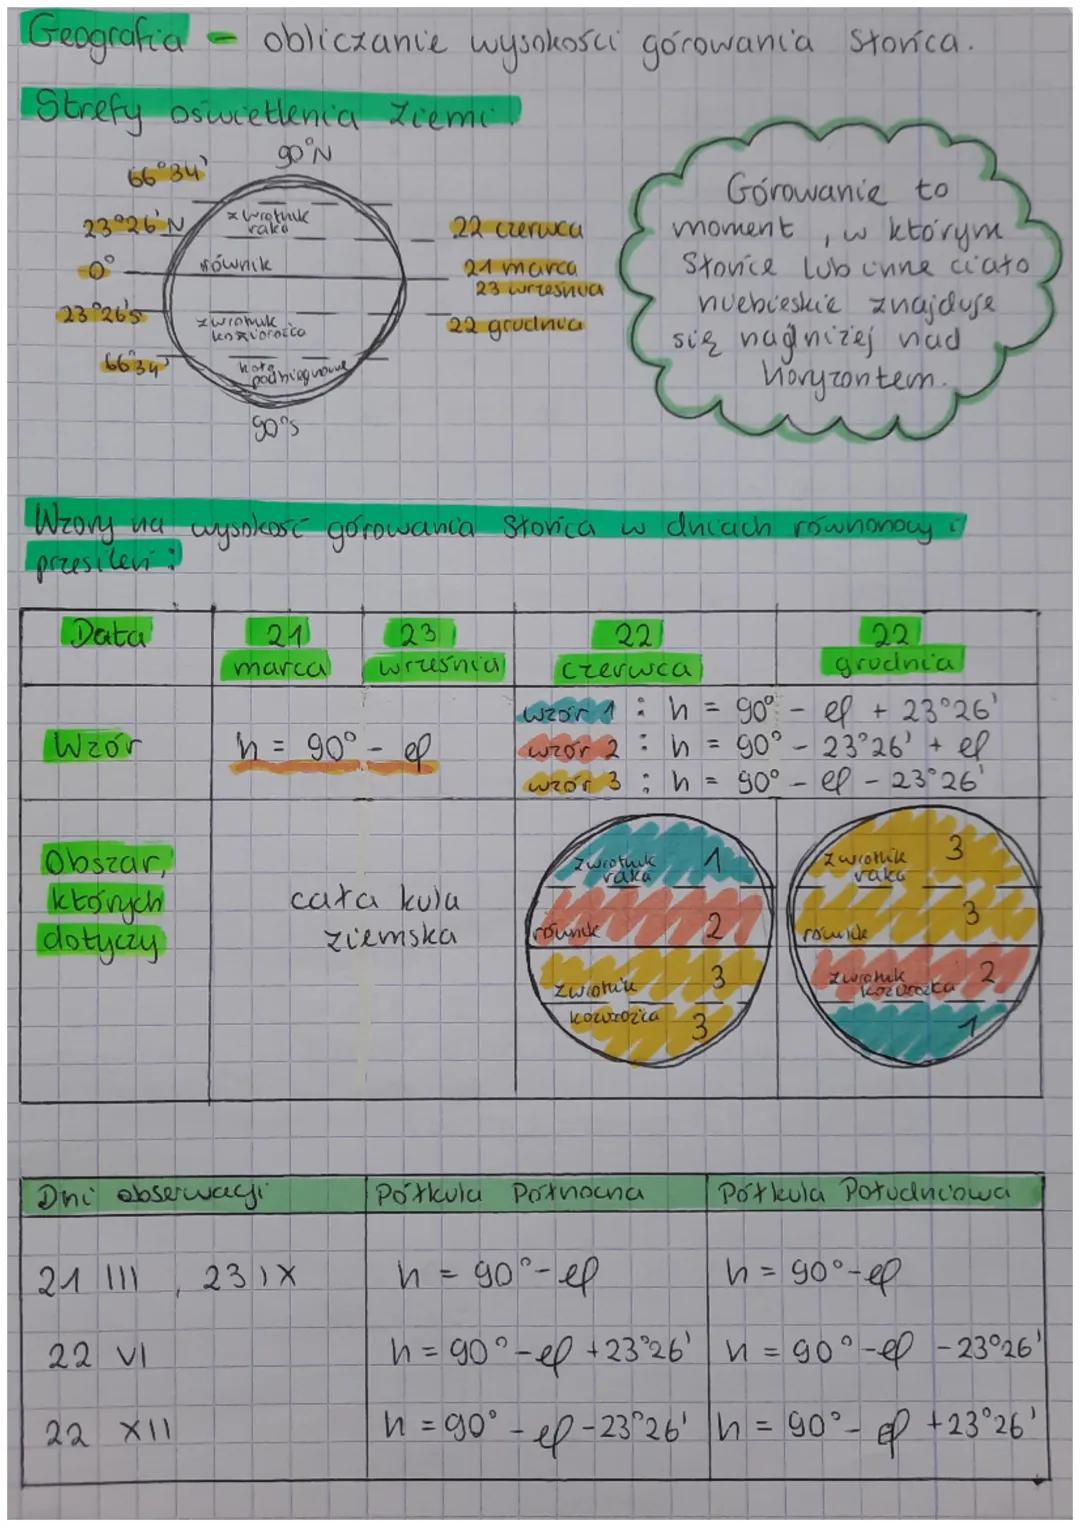 Geografia - obliczanie wysokości górowania Słońca.
Strefy oświetlenia Ziemi!
90°N
66°34'
23°26'N
0°
23°26'S
66°34'
90°S
zwrotnik
raka
równik
zwrotnik
koziorożca
koła
podbiegunowe
22 czerwca
21 marca
23 września
22 grudnia
Górowanie to
moment, w którym
Słońce lub inne ciało
niebieskie znajduje
się najniżej nad
horyzontem.
Wzory na wysokość górowania Słońca w dniach równonocy i
przesileń:
Data
21
marca
23
września
22
czerwca
22
grudnia
Wzór
h = 90° - φ
wzór 1 : h = 90° - φ + 23°26'
wzór 2 : h = 90° - 23°26' + φ
wzór 3 : h = 90° - φ - 23°26'
Obszar,
których
dotyczy
cała kula
ziemska
zwrotnik
raka
1
równik
2
zwrotnik
3
koziorożca
3
zwrotnik
raka
3
równik
3
zwrotnik
2
1
Dni obserwacji
Półkula Północna
Półkula Południowa
21 III, 23 IX
h = 90° - φ
h = 90° - φ
22 VI
h = 90° - φ + 23°26'
h = 90° - φ - 23°26'
22 XII
h = 90° - φ - 23°26'
h = 90° - φ + 23°26'